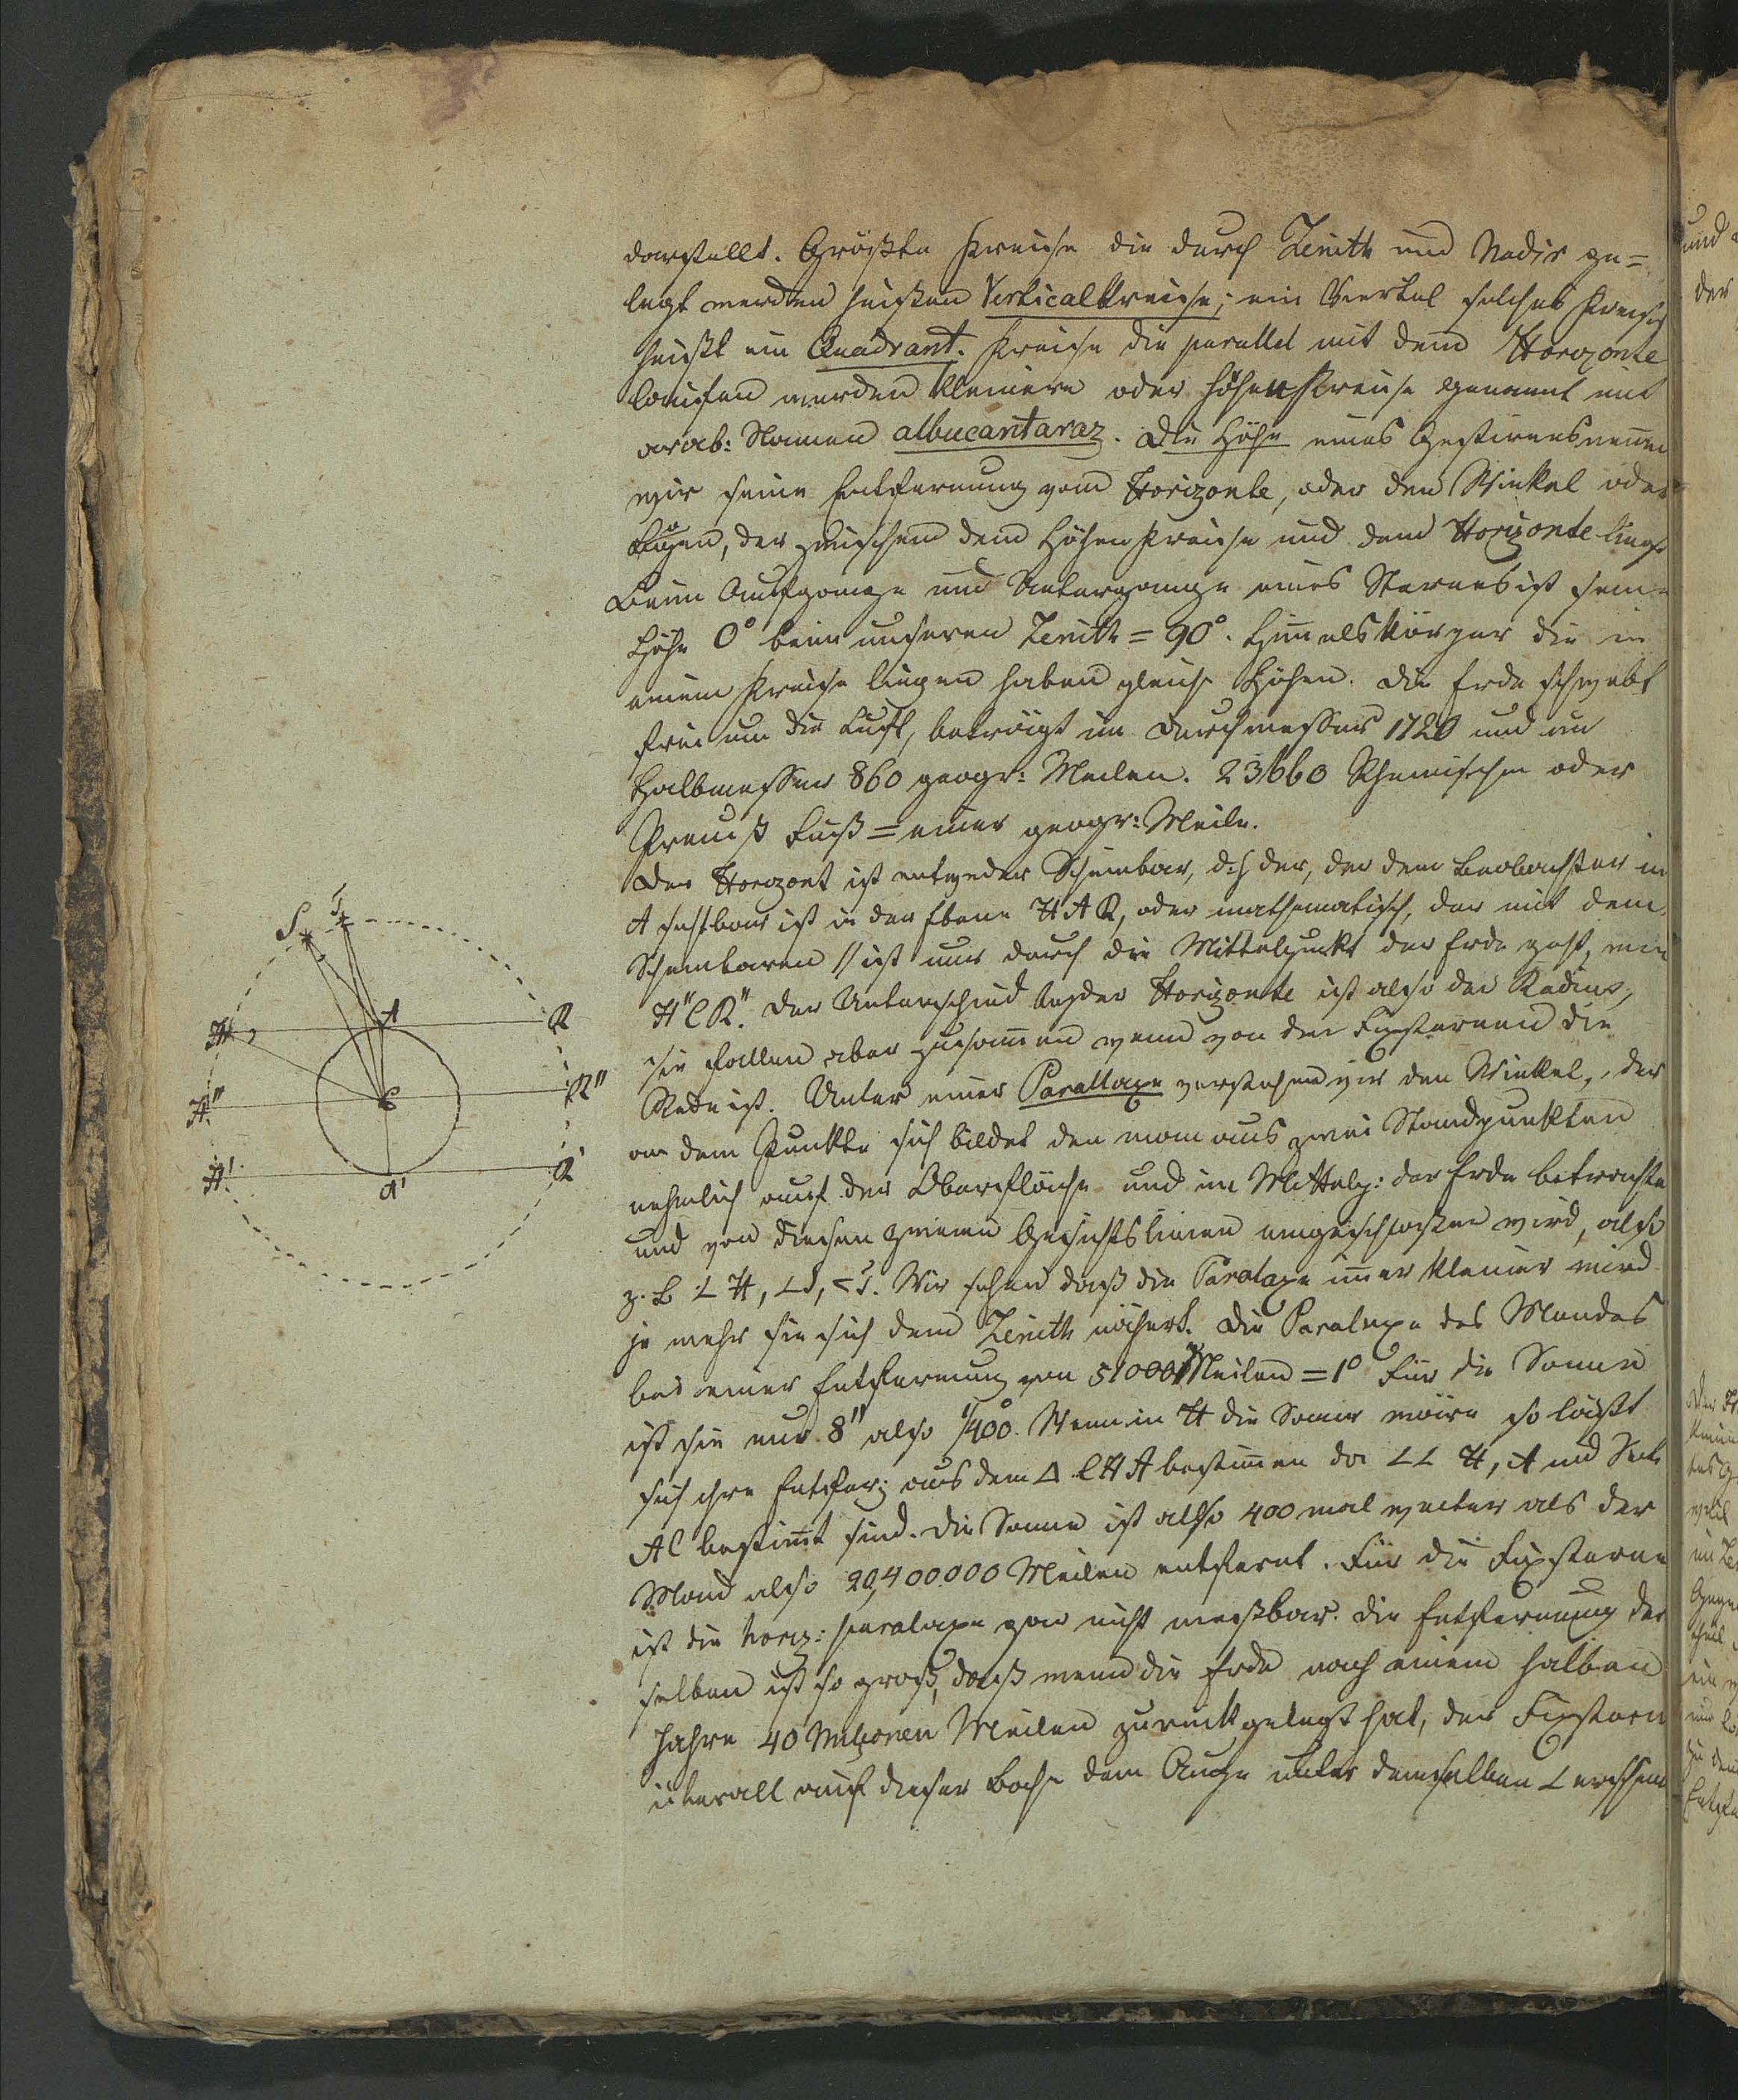 darstellt. Größte Kreise die durch Zenith und Nadir ge=
legt werden heißen Verticalkreise; ein Viertel solches Kreises
heißt ein Quadrant. Kreise die parallel mit dem Horozonte
laufen werden kleinere oder Höhenkreise genannt mit
arab: Namen albucantaraz. Die Höhe eines Gestirnes nenen
wir seine Entfernung vom Horizonte, oder den Winkel oder
Bogen, der zwischem dem Höhenkreise und dem Horizonte liegt
Beim Aufgange und Untergange eines Sternes ist seine
Höhe 0° beim unseren Zenith = 90°. Himelskörper die in
einem Kreise liegen haben gleiche Höhen. Die Erde schwebt
frei um die Luft, beträgt im Durchmesser 1720 und im
Halbmesser 860 geogr: Meilen. 23660 Rheinischen oder
Preuß Fuß = einer geogr: Meile.
Der Horozont ist entweder Scheinbar, d:h der, der dem Beobachter in
A sichtbar ist in der Ebene H A R, oder mathematisch, der mit dem
Scheinbaren // ist nur durch die Mittelpunkt der Erde geht, wie
H" C R". Der Unterschied beyder Horizonte ist also der Radius,
sie fallen aber zusamen wenn von den Fixsternen die
Rede ist. Unter einer Parallaxe verstehen wir den Winkel, der
an dem Punkte sich bildet den man aus zwei Standpunkten
nehmlich auf der Oberfläche und im Mittelp: der Erde betrachte
und von diesen zweien Gesichtslinien eingeschloßen wird, also
z. B ∠ H, ∠ S, < T. Wir sehen daß die Paralaxe imer kleiner wird
je mehr sie sich dem Zenith nähert. Die Paralaxe des Mondes
bei einer Entfernung von 51000 Meilen = 1° Für die Sonne
ist sie nur 8" also 1/400°. Wenn in H die Sonne wäre so läßt
sich ihre Entfer: aus dem Δ C H A bestimen da ∠∠ H, A und Seite
AC bestimt sind. Die Sonne ist also 400 mal weiter als der
Mond also 20,400000 Meilen entfernt. Für die Fixsterne
ist die horiz: paralaxe gar nicht meßbar. Die Entfernung der
selben ist so groß, daß wenn die Erde nach einem halben
Jahre 40 Milionen Meilen zurückgelegt hat, der Fixstern
überall auf dieser Bahn dem Auge unter demselben ∠ erschein
S T
A
H R
C
H" R"
H' A' R'
und
der